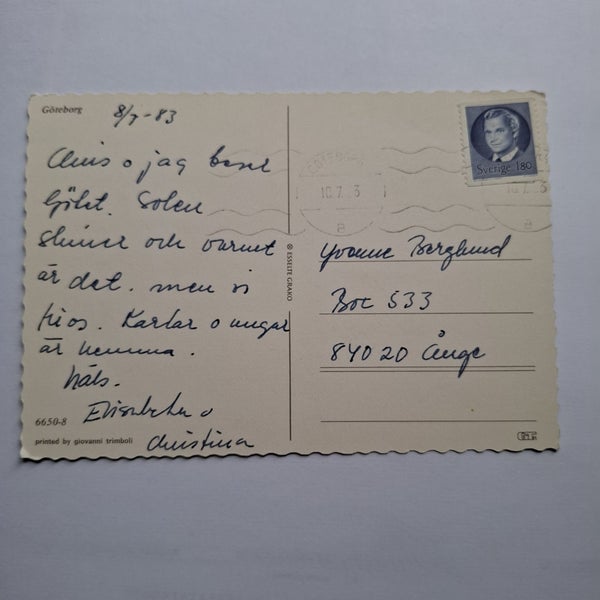 Göteborg
8/7-83
Chris o jag beser
Gbgt. Solen
skiner och varmt
är det. men vi
trivs. Karlar o ungar
är hemma.
häls.
Elisabeth o
Christina
6650-8
printed by giovanni trimboli
© ESSELTE GRAKO
GÖTEBORG
10.7.83
a
Sverige 180
Yvonne Berglund
Box 533
840 20 Ånge